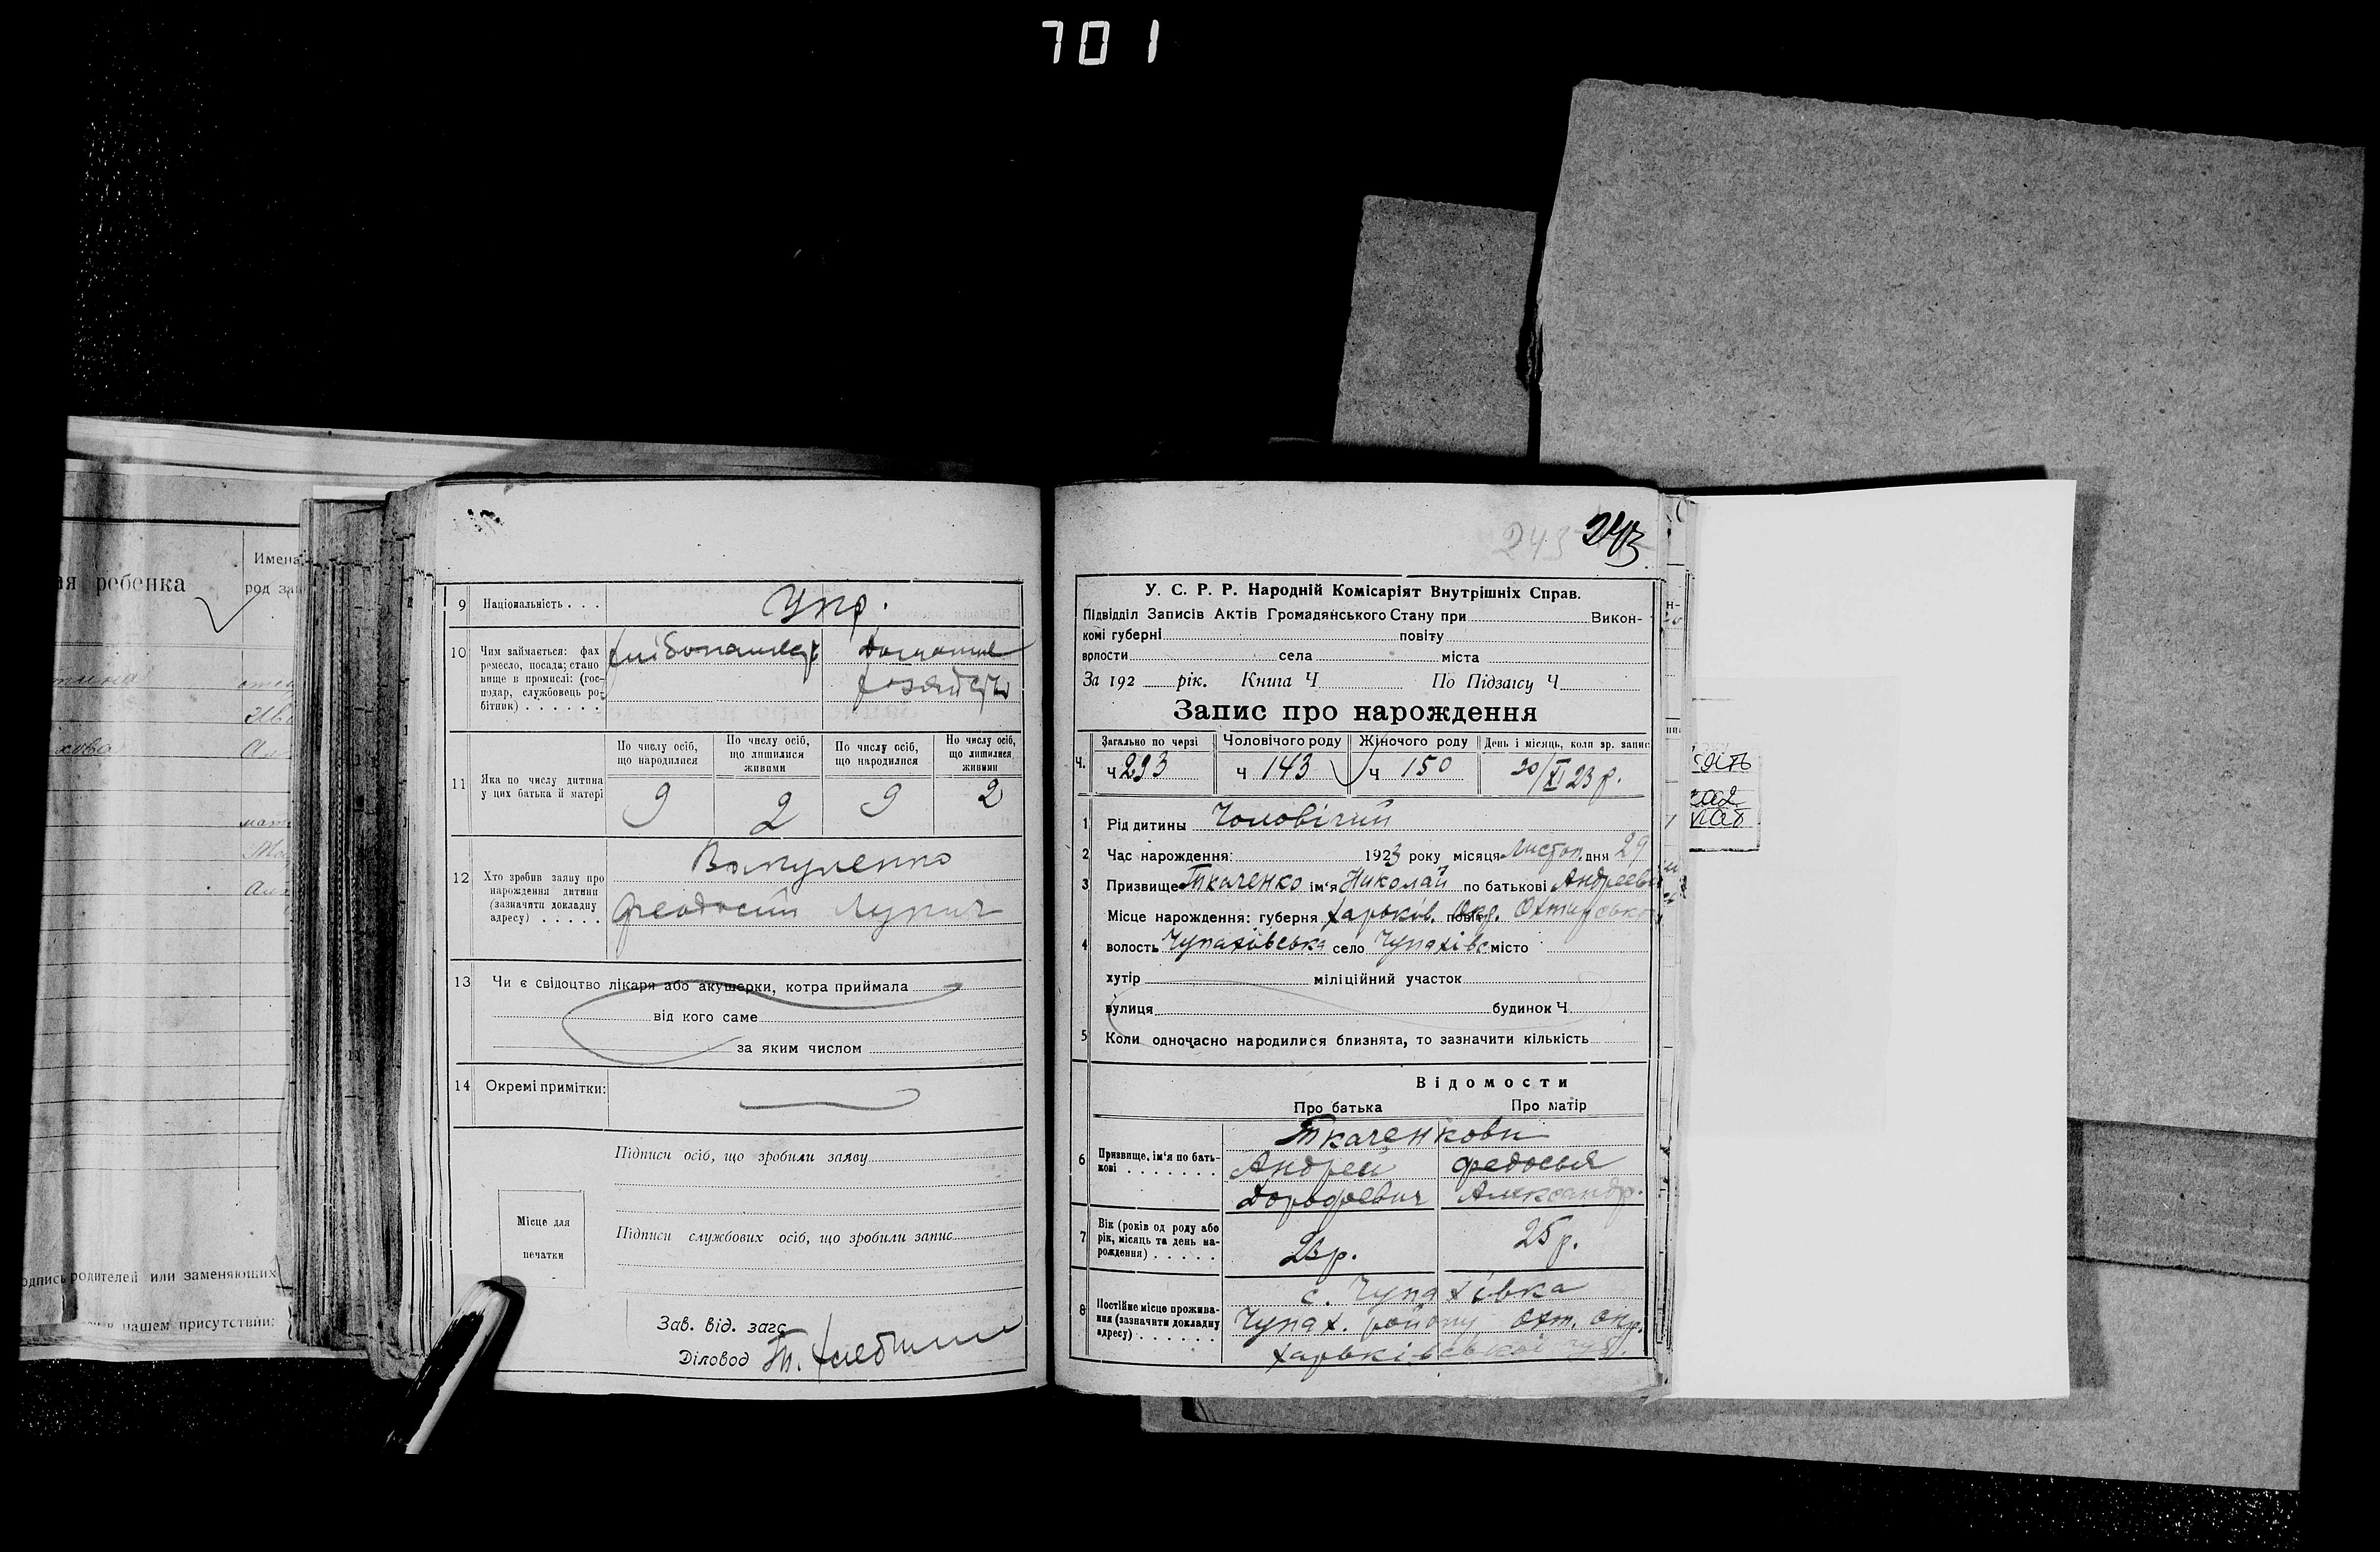 701
ребенка
Имена
род
одпись родителей или заменяющих
нашем присутствии:
9 Національність . . . Укр.
10 Чим займається: фах
ремесло, посада; стано
вище в промислі: (гос-
подар, службовець ро-
бітник) . . . . . .
11 Яка по числу дитина
у цих батька й матері
По числу осіб,
що народилися
По числу осіб,
що лишилися
живими
По числу осіб,
що народилися
По числу осіб,
що лишилися
живими
9 2 9 2
12 Хто зробив заяву про
нарождення дитини
(зазначити докладну
адресу) . . . . .
Вакуленко
13 Чи є свідоцтво лікаря або акушерки, котра приймала
від кого саме
за яким числом
14 Окремі примітки:
Підписи осіб, що зробили заяву
Місце для
печатки
Підписи службових осіб, що зробили запис
Зав. від. загс
Діловод
243 243
У. С. Р. Р. Народній Комісаріят Внутрішніх Справ.
Підвідділ Записів Актів Громадянського Стану при Викон-
комі губерні повіту
волости села міста
За 192 рік. Книга Ч По Підзагсу Ч
Запис про нарождення
Загально по черзі Чоловічого роду Жіночого роду День і місяць, коли зр. запис
ч. ч 293 ч 143 ч 150 30/XI 23 р.
1 Рід дитини Чоловічий
2 Час нарождення: 1923 року місяця Листоп. дня 29
3 Призвище Ткаченко ім'я Николай по батькові Андреев
Місце нарождення: губерня Харьків. повіт Окр. Охтирсько
4 волость Чупахівська село Чупахівс місто
хутір міліційний участок
вулиця будинок Ч
5 Коли одночасно народилися близнята, то зазначити кількість
Відомости
Про батька Про матір
6 Призвище, ім'я по бать-
кові . . . . . . .
Ткаченкови
Андрей Федосья
Дорофеевич Александр.
7 Вік (років од роду або
рік, місяць та день на-
рождення) . . . . .
25 р.
8 Постійне місце прожива-
ння (зазначити докладну
адресу) . . . . . .
с. Чупахівка
Чупах. району Охт. окр.
Харьківської губ.